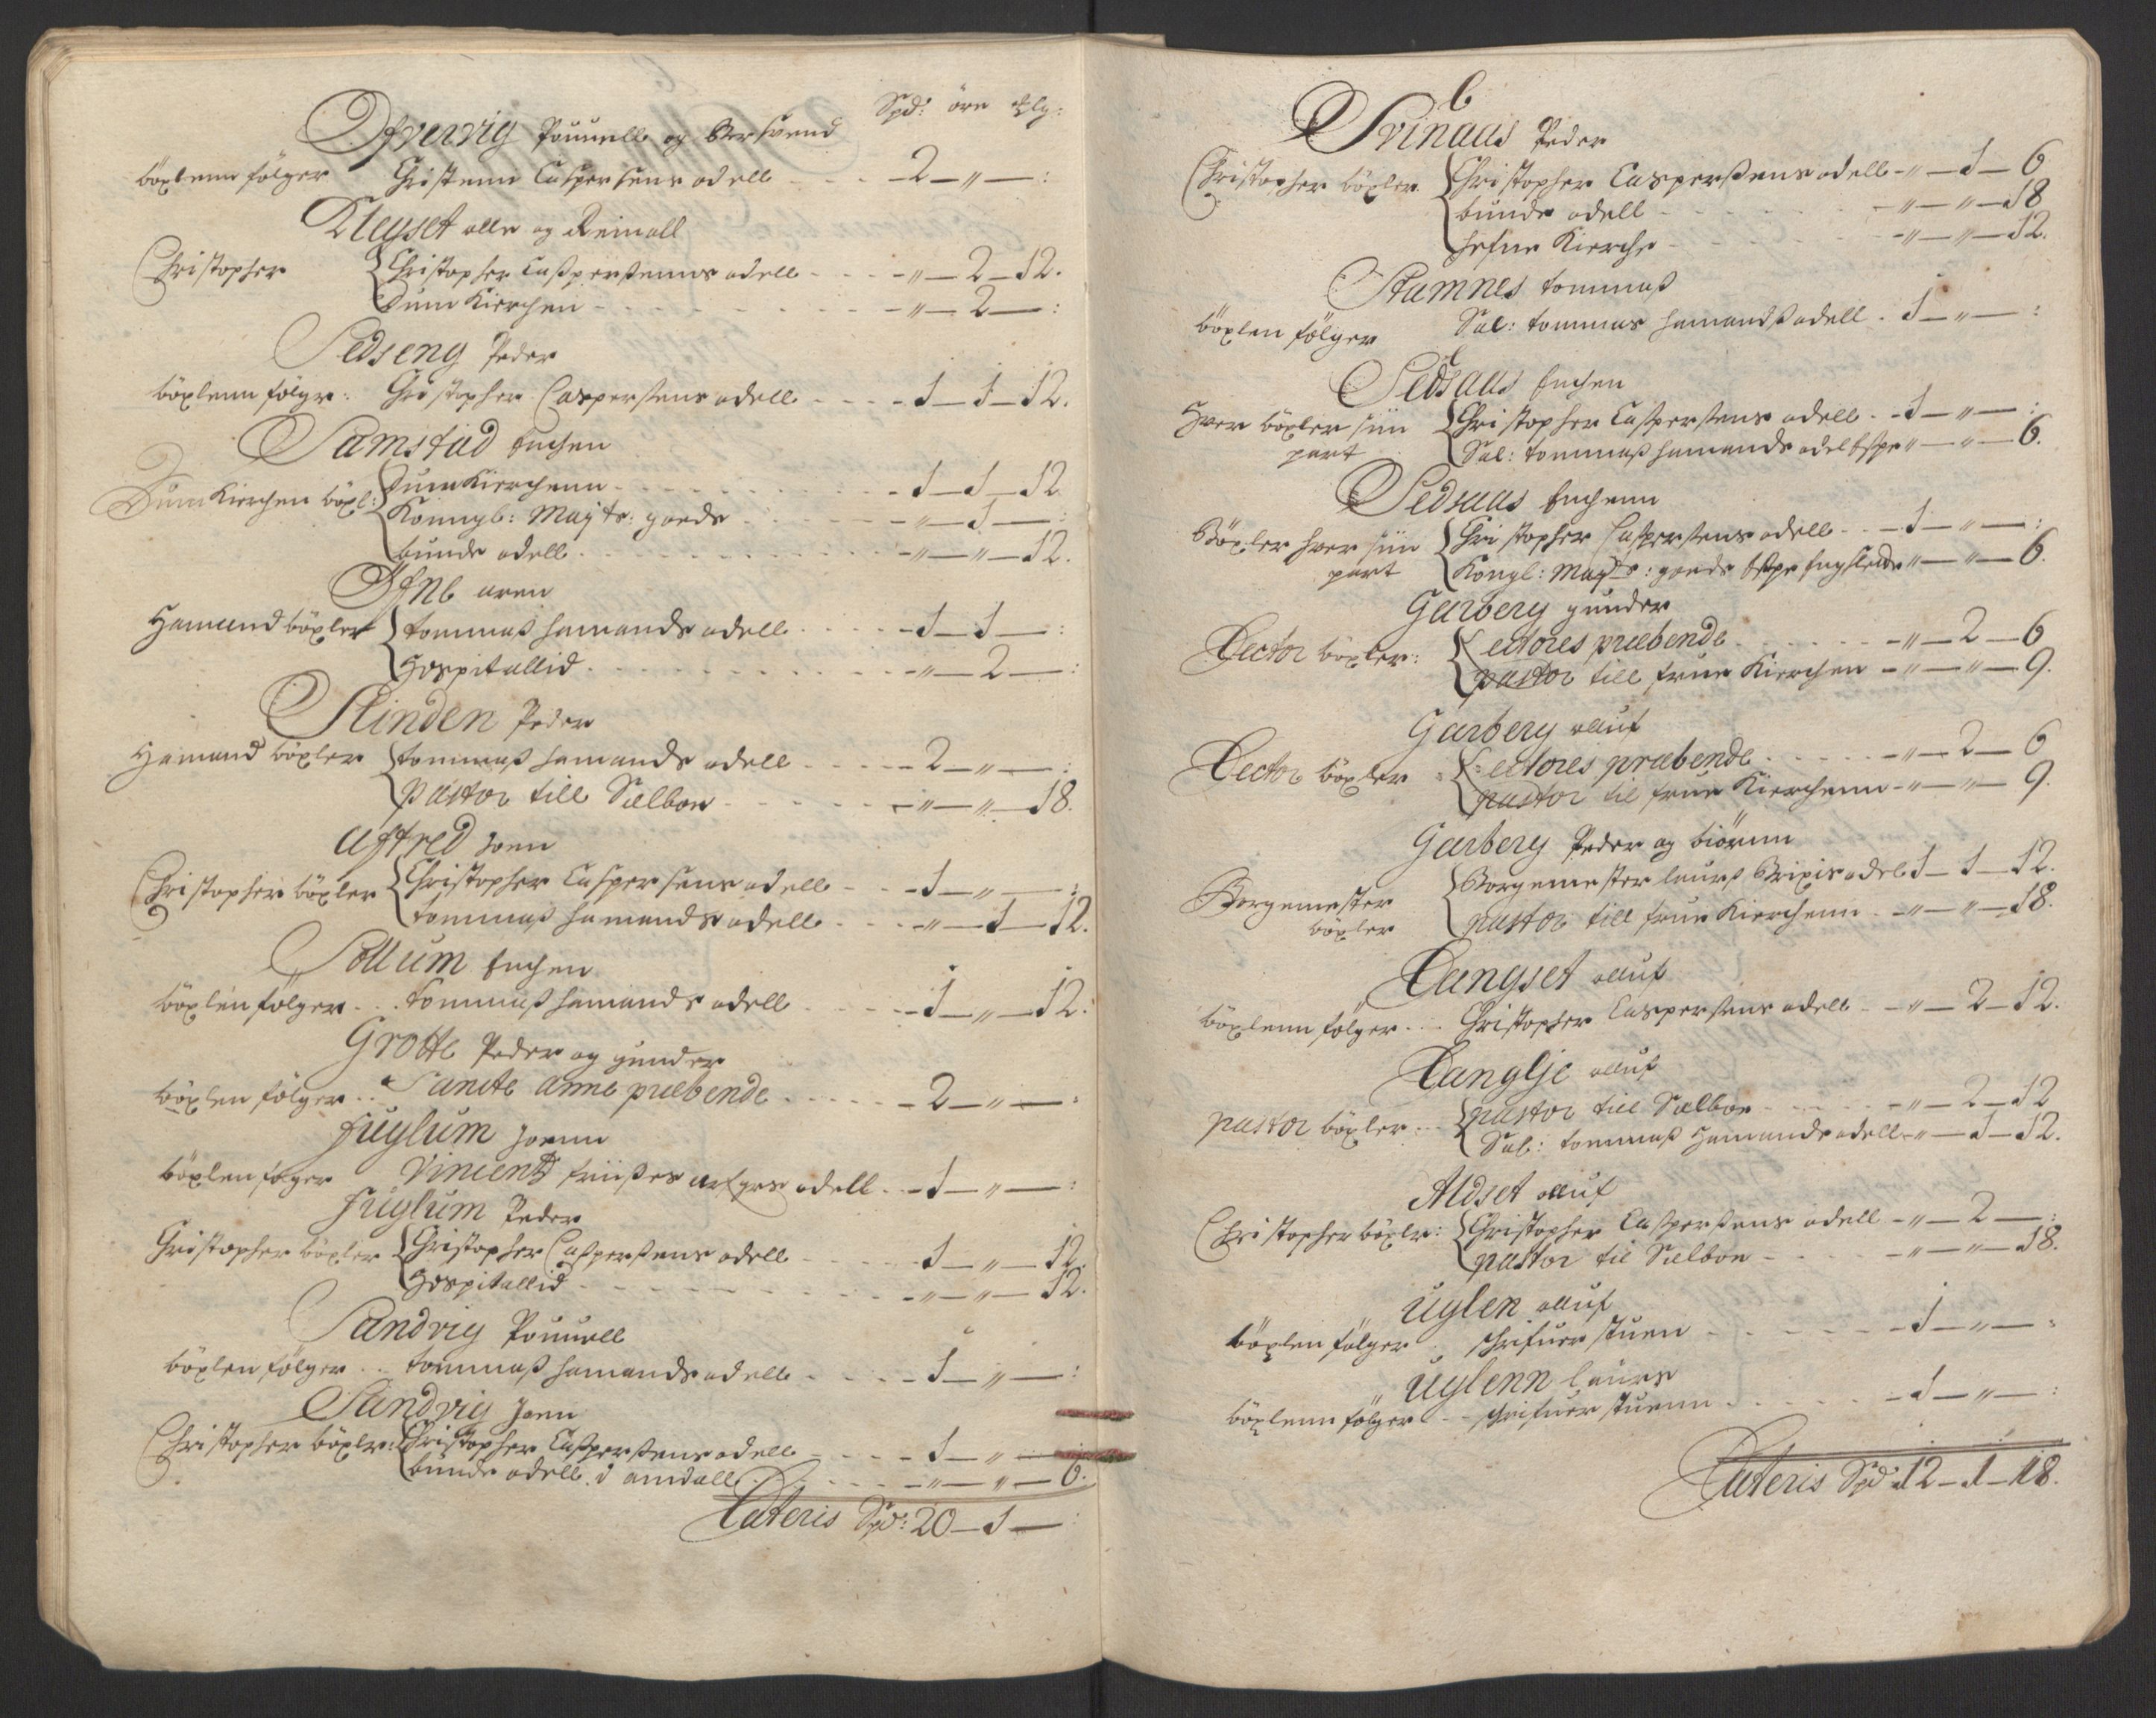 Spd: öre Mlg:
Ofvervig Pouuell og Bersvend
böxlenn fölger Christenn Caspersens odell - - - 2 — „ — :
Kleyset olle og Reinoll
Christopher { Christopher Casperssenns odell - - - „ — 2 — 12.
Dum Kierchen - - - „ — 2 — :
Sedseng Peder
böxlenn folger: Christopher Caspersens odell - - - 1 — 1 — 12.
Samstad Enchen
Dum Kierchen böxl: { Dum Kierchenn - - - 1 — 1 — 12
Konngl: Maytz: goeds - - - „ — 1 — :
bunde odell - - - „ — „ — 12.
Ofne aren
Hamand böxler { tommass hamands odell - - - 1 — 1 — :
Hospitallid - - - „ — 2 — :
Slinden Peder
Hamand böxler { tommass hamands odell - - - 2 — „ — :
Pastor till Sælboe - - - „ — „ — 18.
Uftred Joen
Christopher böxler { Christopher Caspersens odell - - - 1 — „ — :
tommass hamands odell - - - „ — 1 — 12.
Sollum Enchen
böxlen fölger . . tommass hamands odell - - - 1 — „ — 12:
Grotte Peder og gunder
böxlen fölger . . Sancte anne præbende - - - 2 — „ — :
Fuglum Joenn
böxlen föger Vincentz friisses arfges odell - - 1 — „ — :
Fuglum Peder
Christopher böxler { Christopher Casperssens odell - - - 1 — „ — 12.
Hospitallid - - - „ — „ — 12.
Sandvig Pouuell
böxlen fölger . . tommass hamands odell - - - 1 — „ — :
Sandvig Joen
Christopher böxler: { Christopher Casperssens odell - - - 1 — „ —
bunde odell i amdall - - - „ — „ — 6.
Lateris Spd: 20 — 1 — :
Svinaas Peder
Christopher böxler { Christopher Casperssens odell - „ — 1 — 6
bunde odell - - - „ — „ — 18
hefne Kierche - - - „ — „ — 12.
Stamnes tommass
böxlen fölger Sal: tommas hamands odell . 1 — „ — :
Sedsaas Enchen
Hver böxler siin part { Christopher Casperssens odell . - 1 — „ — :
Sal: tommass hamands odel „ — „ — 6.
Sedsaas Enchenn
Böxler hver siin part { Christopher Casperssens odell - - 1 — „ — :
Kongl: Maytz: goeds „ — „ — 6.
Garberg gunder
Lector böxler: { Lectores præbende - - - „ — 2 — 6
pastor till frue Kierchen - „ — „ — 9.
Garberg olluf
Lector böxler : { Lectores præbende - - - „ — 2 — 6
pastor til frue Kierchenn - „ — „ — 9.
Garberg Peder og biörnn
Borgemester böxler { Borgemester laurs Brixis odel 1 — 1 — 12.
pastor till frue Kierchenn - „ — „ — 18.
Langset olluf
böxlenn fölger . . Christopher Caspersens odell - - „ — 2 — 12.
Langlje olluf
pastor böxler . . { pastor till Sælboe - - - „ — 2 — 12
Sal: tommass Hamands odell - „ — 1 — 12.
Aldset olluf
Christopher böxler: { Christopher Casperssens odell - „ — 2 — :
pastor til Sælboe - - - „ — „ — 18.
Uglen olluf
böxlen fölger . schrifuer stuen - - - 1 — „ — :
Uglenn laurs
böxlenn fölger - - schrifuer stuenn - - - 1 — „ — :
Lateris Spd: 12 — 1 — 18.